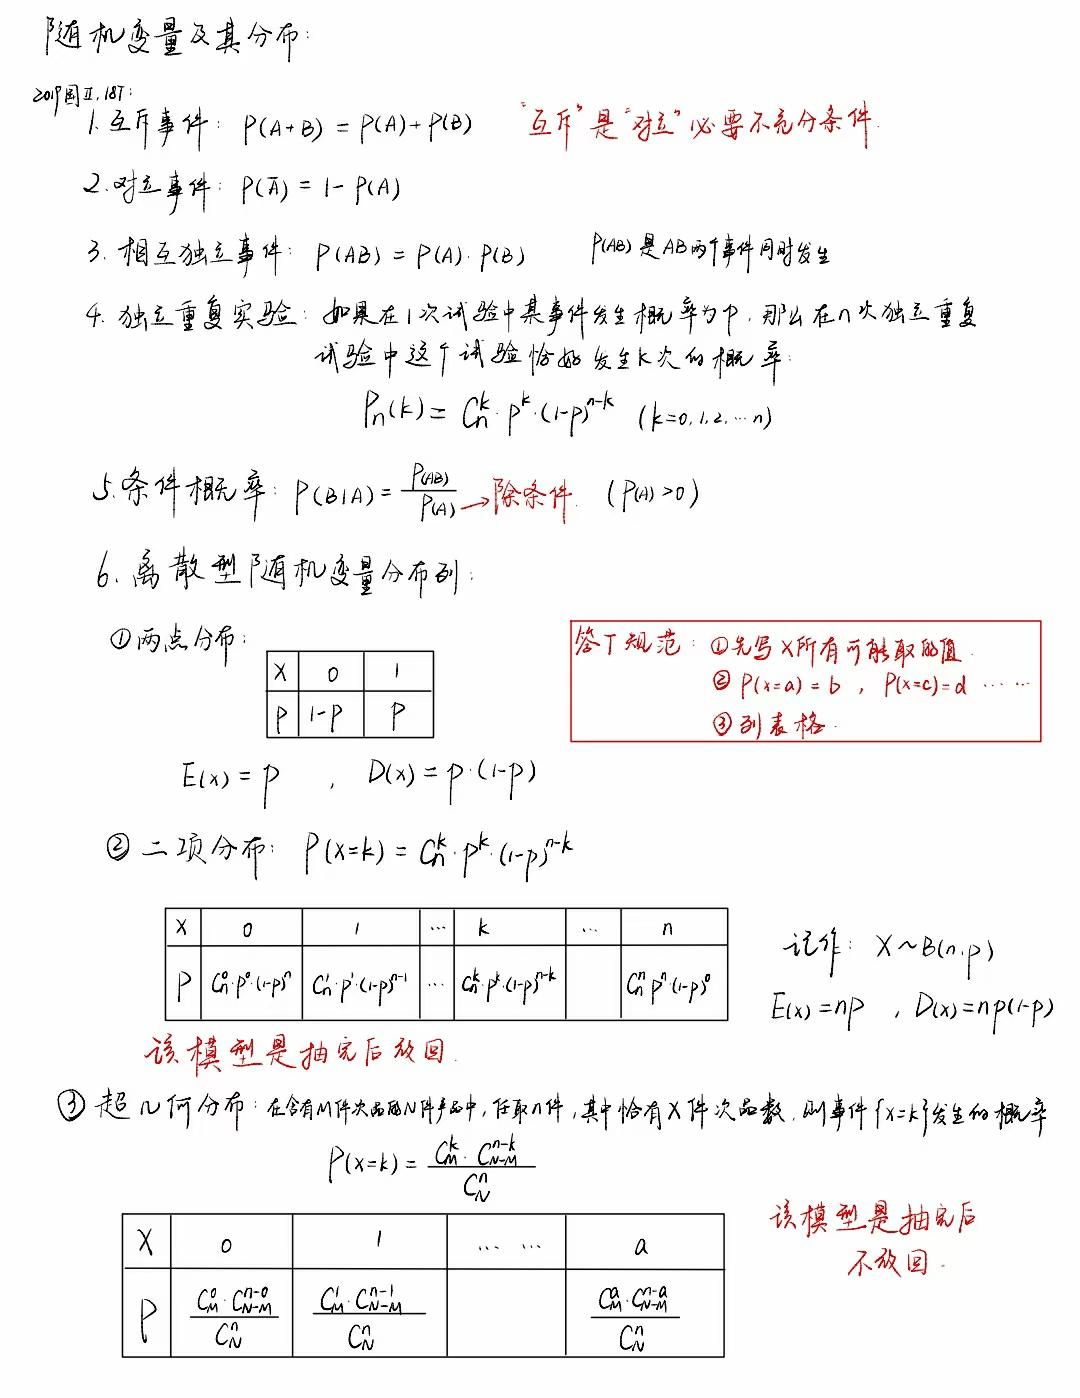 随机变量及其分布：
2019国Ⅱ，18T：
1. 互斥事件：P(A+B) = P(A)+P(B) “互斥”是“对立”必要不充分条件.
2. 对立事件：P(Ā) = 1-P(A)
3. 相互独立事件：P(AB) = P(A)·P(B) P(AB)是AB两个事件同时发生
4. 独立重复实验：如果在1次试验中某事件发生概率为p，那么在n次独立重复
试验中这个试验恰好发生k次的概率：
Pₙ(k) = Cₙᵏ·pᵏ·(1-p)ⁿ⁻ᵏ (k=0,1,2,…n)
5. 条件概率：P(B|A) = P(AB)/P(A) →除条件. (P(A)>0)
6. 离散型随机变量分布列：
①两点分布：
X 0 1
P 1-P P
E(x) = p , D(x) = p·(1-p)
答T规范：①先写X所有可能取的值.
② P(x=a) = b , P(x=c)=d ……
③列表格.
② 二项分布：P(X=k) = Cₙᵏ·pᵏ·(1-p)ⁿ⁻ᵏ
X 0 1 … k … n
P Cₙ⁰·p⁰·(1-p)ⁿ Cₙ¹·p¹·(1-p)ⁿ⁻¹ … Cₙᵏ·pᵏ·(1-p)ⁿ⁻ᵏ Cₙⁿpⁿ·(1-p)⁰
记作：X~B(n,p)
E(x)=np , D(x)=np(1-p)
该模型是抽完后放回.
③ 超几何分布：在含有M件次品的N件产品中，任取n件，其中恰有X件次品数，则事件{x=k}发生的概率
P(x=k) = C_M^k·C_{N-M}^{n-k}/C_N^n
X 0 1 …… a
P C_M^0·C_{N-M}^{n-0}/C_N^n C_M^1·C_{N-M}^{n-1}/C_N^n C_M^a·C_{N-M}^{n-a}/C_N^n
该模型是抽完后
不放回.